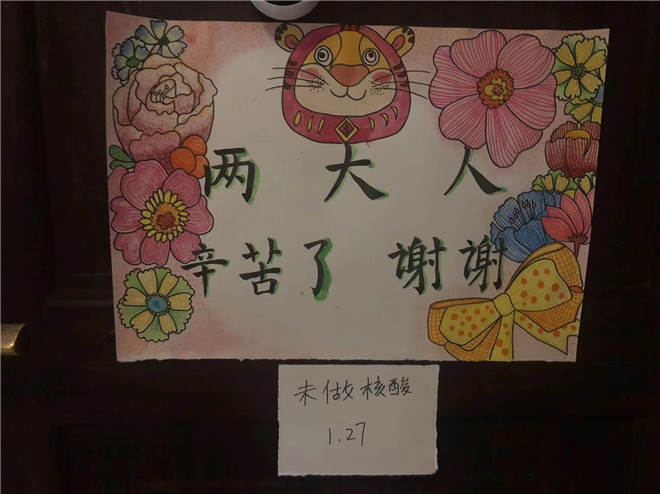 两大人
辛苦了 谢谢
未做核酸
1.27